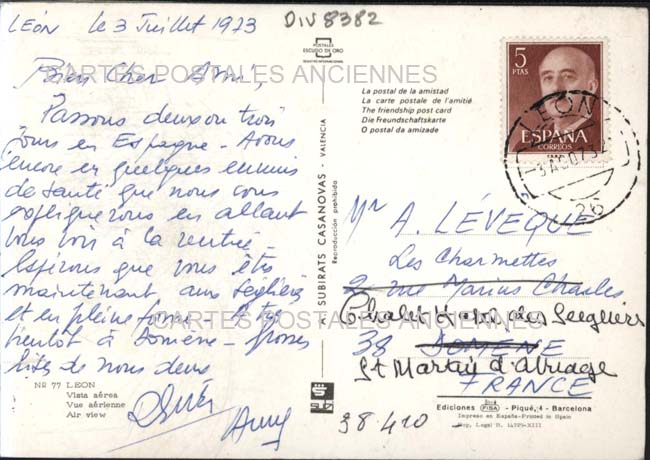 LEÓN le 3 Juillet 1973
DIV 8382
Bien Cher Ami,
CARTES POSTALES ANCIENNES
Passons deux ou trois
jours en Espagne - Avons
encore eu quelques ennuis
de santé que nous vous
expliquerons en allant
vous voir à la rentrée -
Espérons que vous êtes
maintenant aux Seigliers
et en pleine forme -
bientôt à Domène - Grosses
bises de nous deux
Nº 77 LEON
Vista aérea
Vue aérienne
Air view
POSTALES
ESCUDO DE ORO
La postal de la amistad
La carte postale de l'amitié
The friendship post card
Die Freundschaftskarte
O postal da amizade
SUBIRATS CASANOVAS - VALENCIA
Reproducción prohibida
5
PTAS
ESPAÑA
CORREOS
LEÓN
26
Mr A. LÉVEQUE
Les Charmettes
2 rue Marius Charles
Chalet Hotel des Seigliers
38 DOMÈNE
St Martin d'Uriage
FRANCE
CARTES POSTALES ANCIENNES
38-410
Ediciones FISA - Piqué, 4 - Barcelona
Impreso en España-Printed in Spain